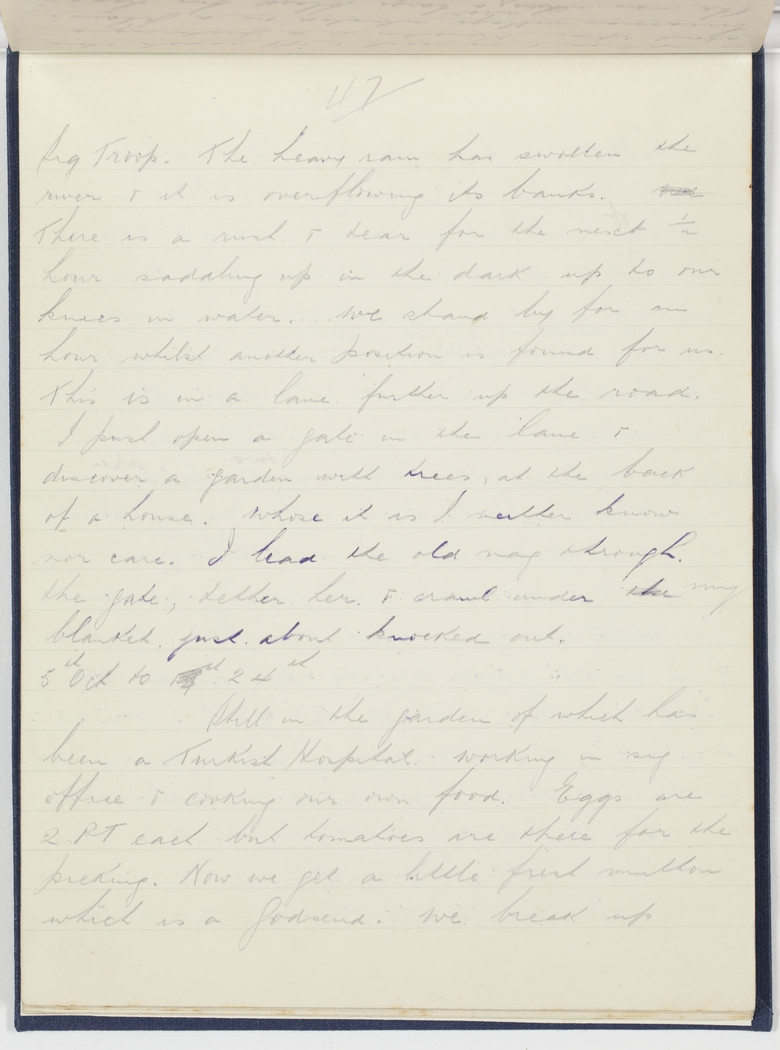 47
Sig Troop. The heavy rain has swollen the
river & it is overflowing its banks.
There is a rush & tear for the next ½
hour saddling up in the dark up to our
knees in water. We stand by for an
hour whilst another position is found for us.
This is in a lane further up the road.
I push open a gate in the lane &
discover a garden with trees, at the back
of a house. Whose it is I neither know
nor care. I lead the old nag through
the gate, tether her & crawl under the my
blanket just about knocked out.
5th Oct to 24th
Still in the garden of which has
been a Turkish Hospital. Working in sig
office & cooking our own food. Eggs are
2 PT each but tomatoes are there for the
picking. Now we get a little fresh mutton
which is a Godsend. We break up